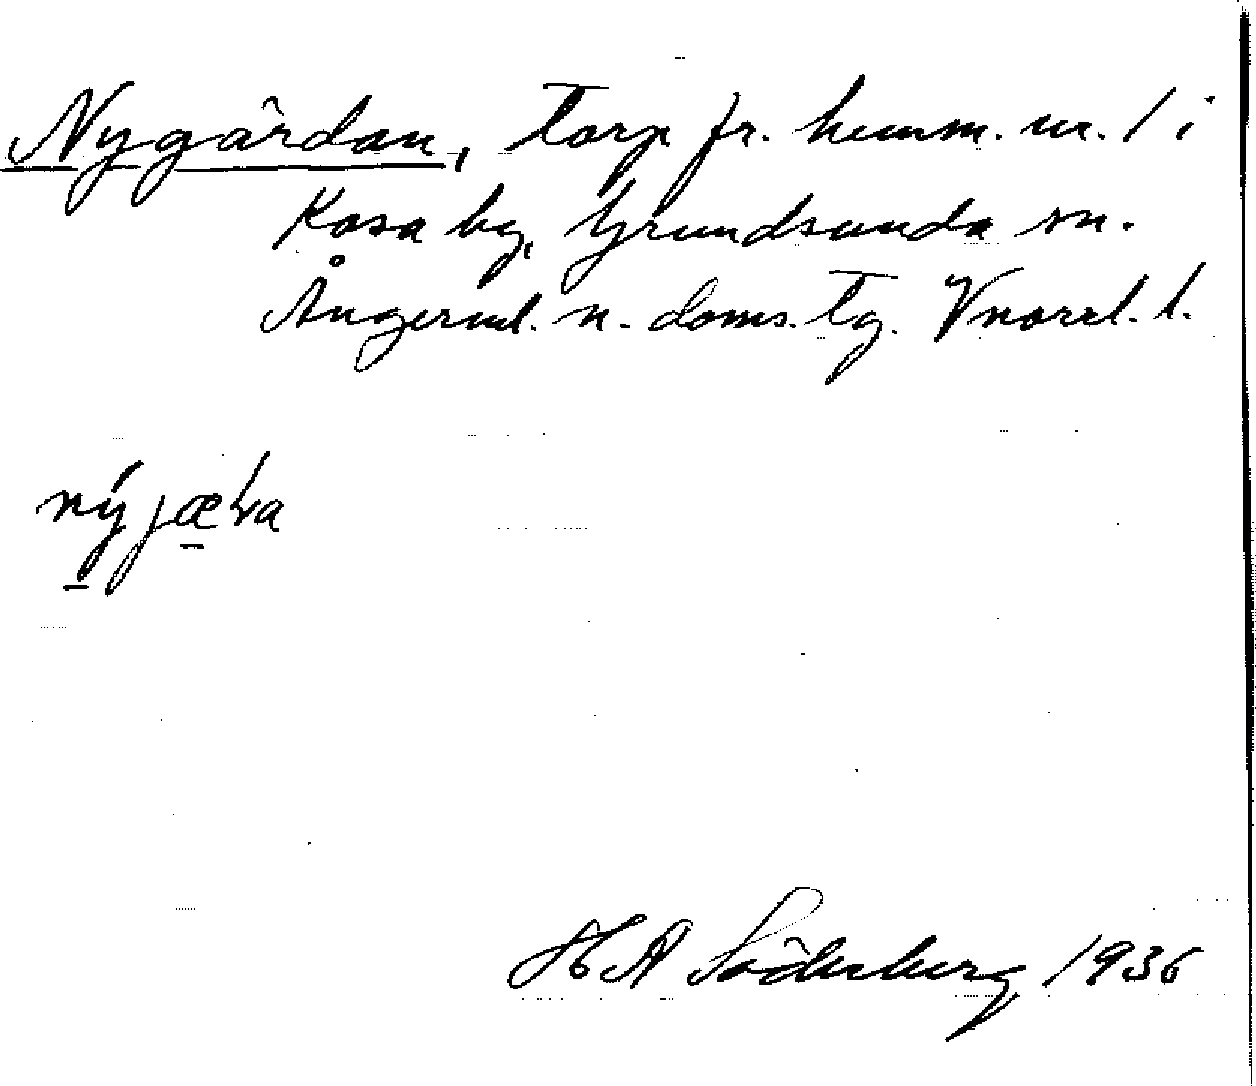 Nygårdan, torp fr. hemm. nr. 1 i
Kasa by, Grundsunda sn.
Ångerml. n. doms. tg. Vnorrl. l.
H A Söderberg 1936